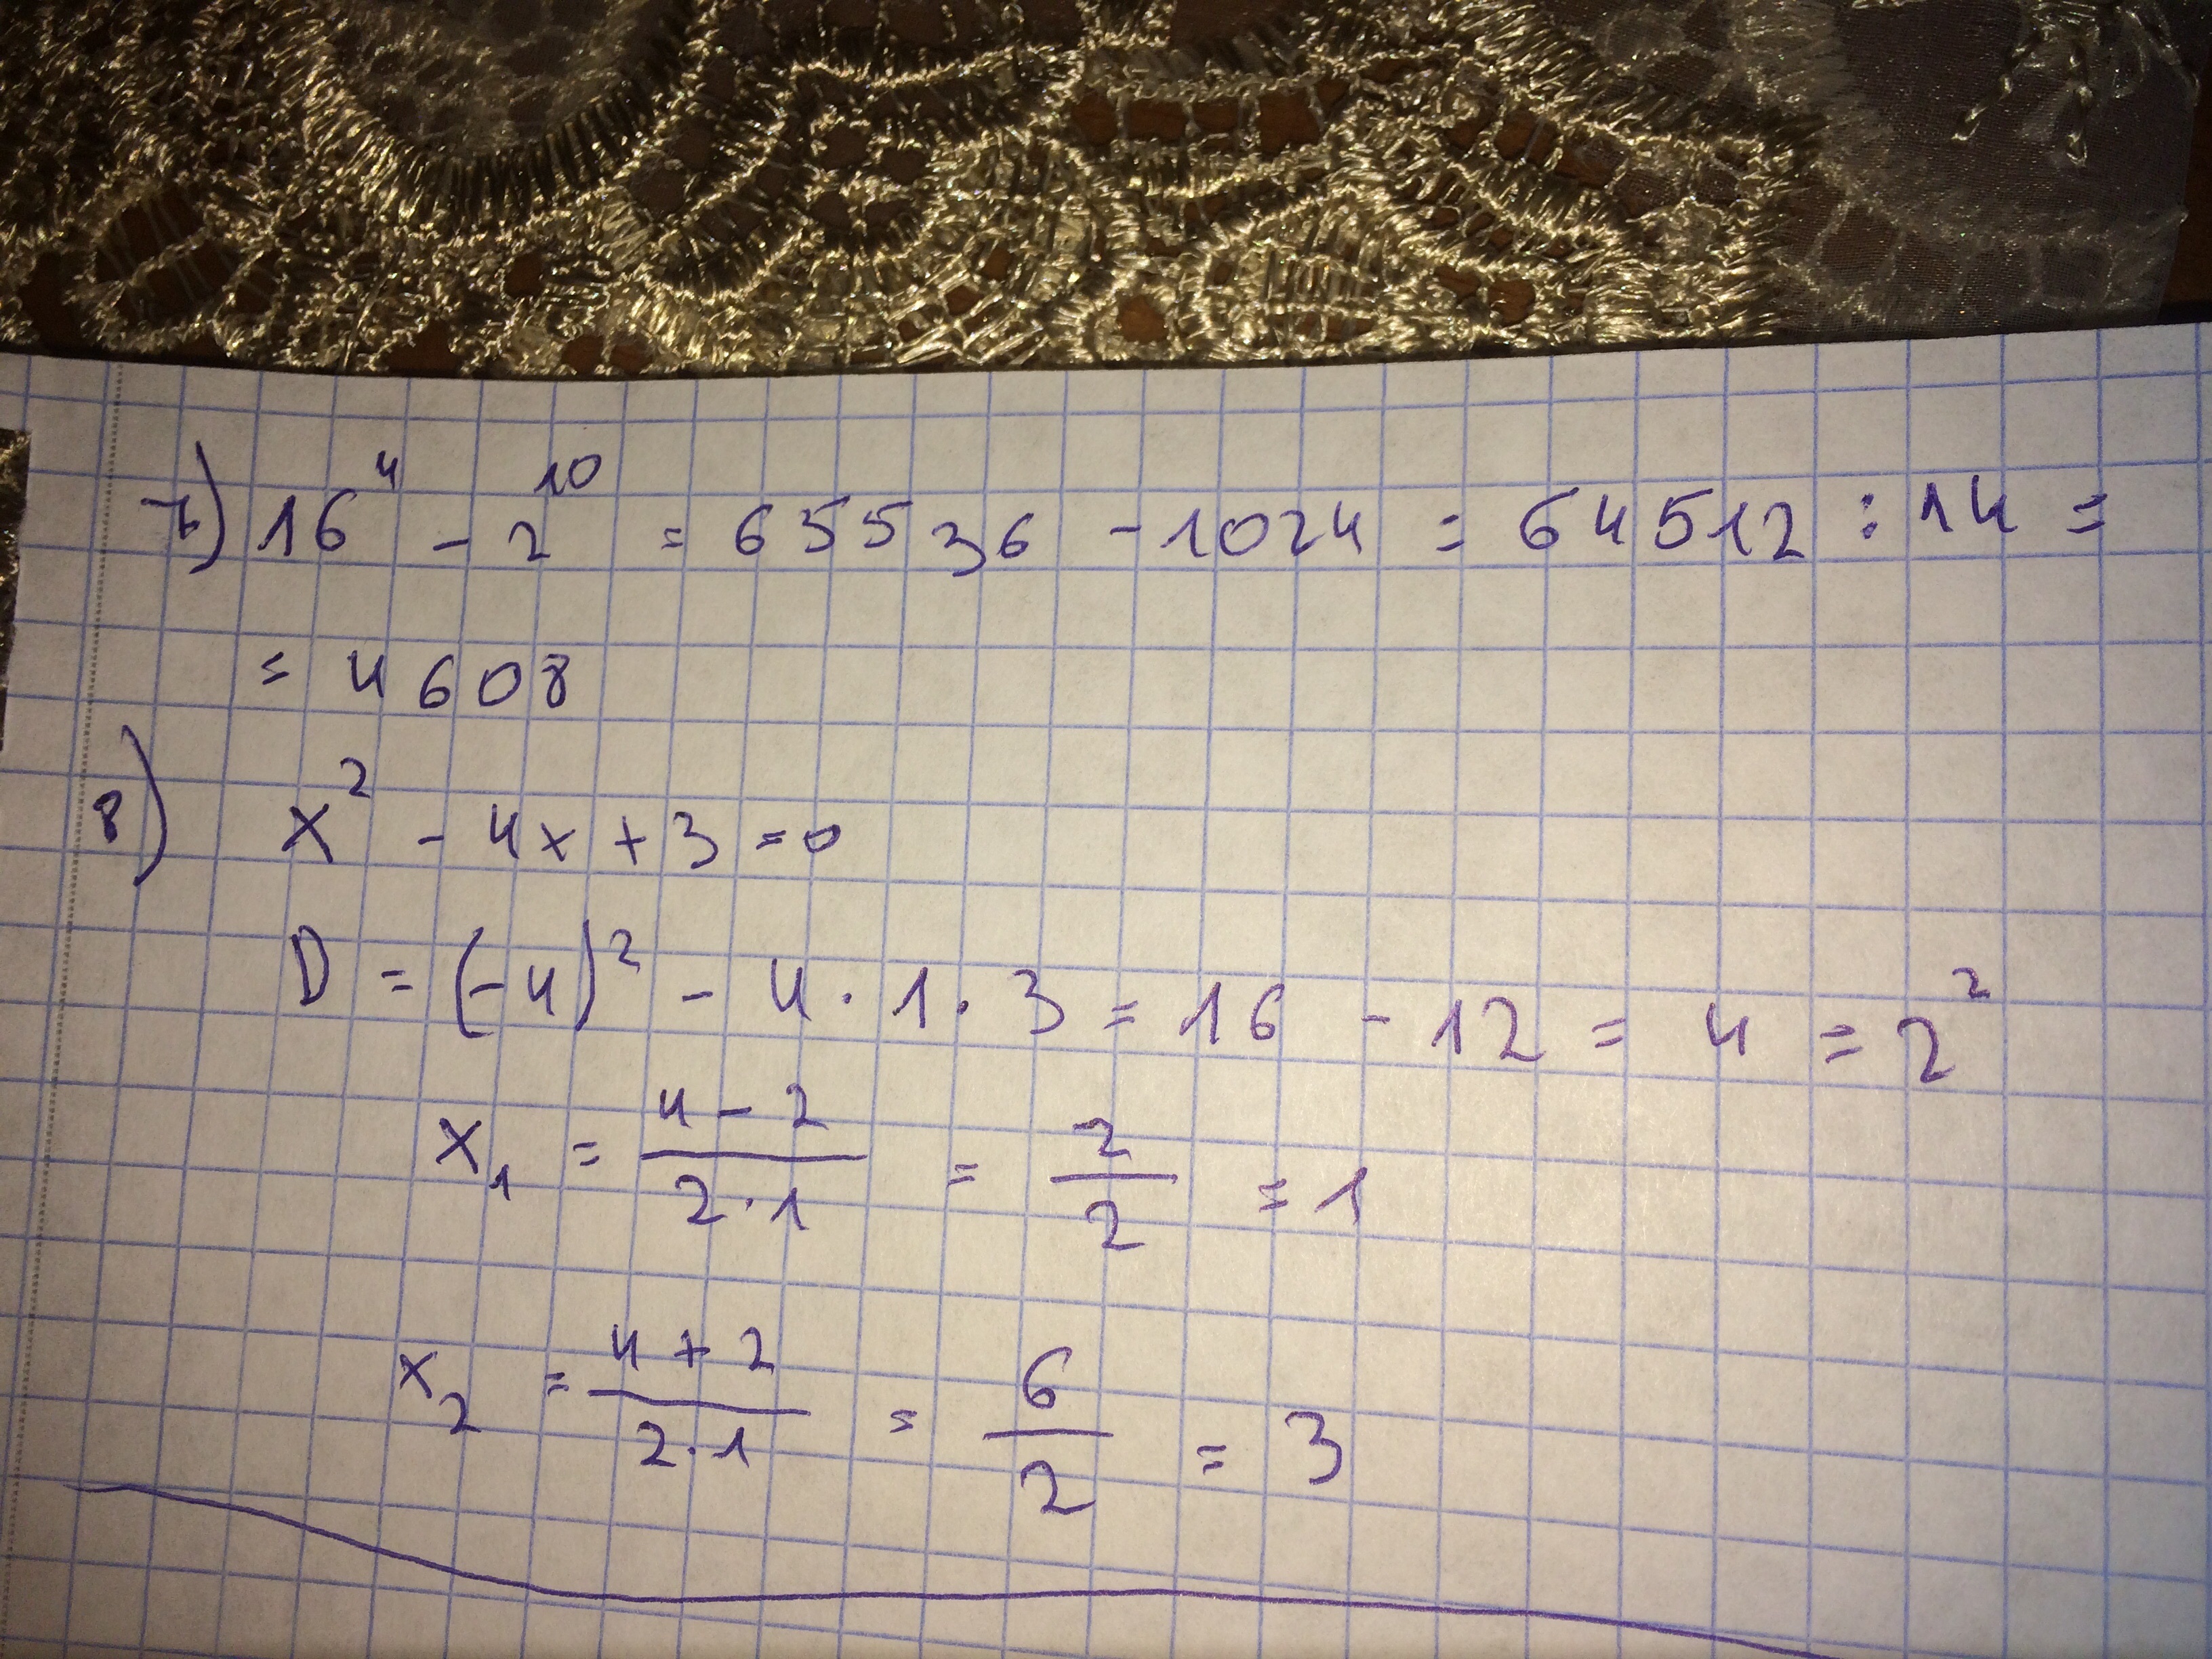 7) 16⁴ - 2¹⁰ = 65536 - 1024 = 64512 : 14 =
= 4608
8) x² - 4x + 3 = 0
D = (-4)² - 4 · 1 · 3 = 16 - 12 = 4 = 2²
x₁ = (4 - 2)/(2·1) = 2/2 = 1
x₂ = (4 + 2)/(2·1) = 6/2 = 3